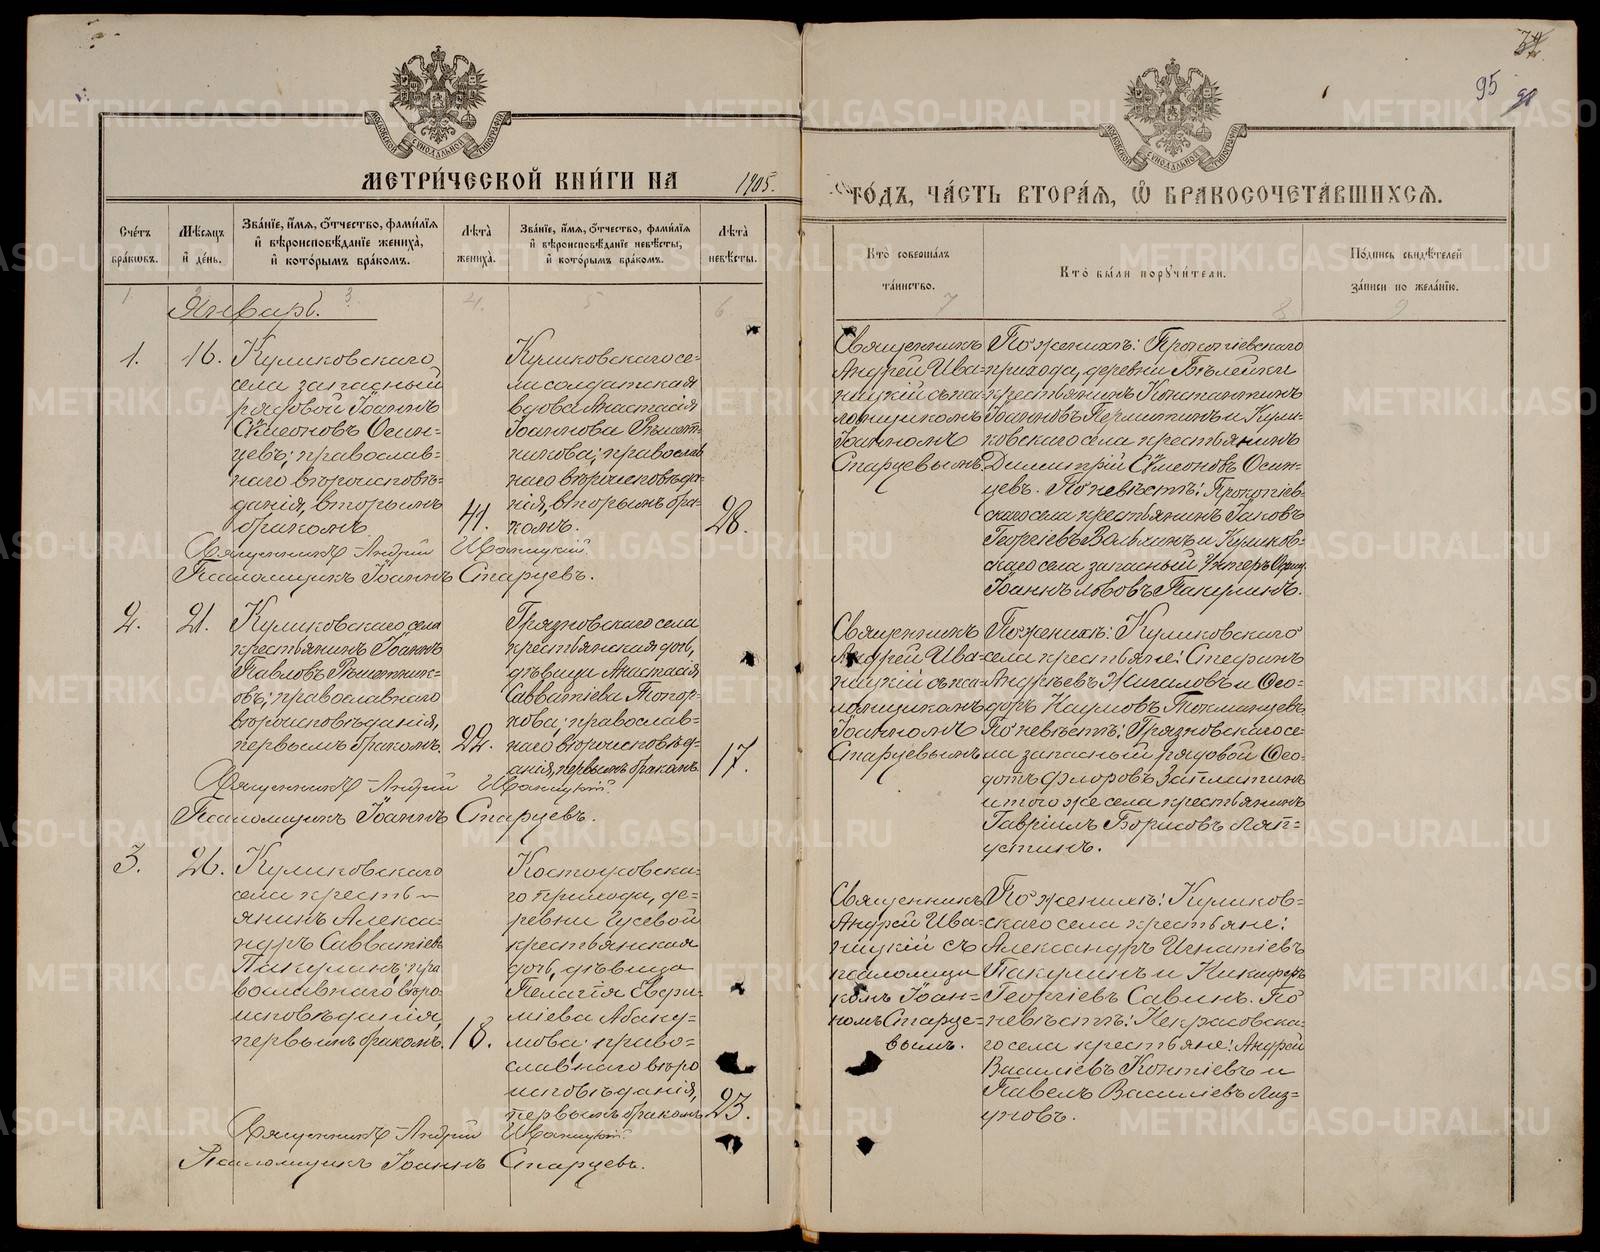 34
95
МЕТРИ́ЧЕСКОЙ КНИ́ГИ НА 1905. ГО́ДЪ, ЧА́СТЬ ВТОРА́Я, Ѽ БРАКОСОЧЕТА́ВШИХСЯ.
Сче́тъ бра́ковъ.
Мѣ́сяцъ и҆ де́нь.
Зва́нїе, и҆́мя, ѻ҆́тчество, фами́лїя и҆ вѣроисповѣ́данїе жениха̀, и҆ кото́рымъ бра́комъ.
Лѣ́та жениха̀.
Зва́нїе, и҆́мя, ѻ҆́тчество, фами́лїя и҆ вѣроисповѣ́данїе невѣ́сты, и҆ кото́рымъ бра́комъ.
Лѣ́та невѣ́сты.
Кто̀ соверша́лъ та́инство.
Кто̀ бы́ли пору́чители.
По́дпись свидѣ́телей за́писи по жела́нїю.
1 2 3 4. 5 6 7 8 9
Январь.
1.
16.
Куликовскаго
села запасный
рядовой Іоаннъ
Сѵмеоновъ Осин-
цевъ; православ-
наго вѣроисповѣ-
данія, вторымъ
бракомъ
41.
Куликовскаго се-
ла солдатская
вдова Анастасія
Іоаннова Рѣшет-
никова; православ
наго вѣроисповѣда-
нія, вторымъ бра-
комъ.
28.
Священникъ
Андрей Ива-
ницкій съ пса-
ломщикомъ
Іоанномъ
Старцевымъ.
По женихѣ: Прокопіевскаго
прихода, деревни Бѣлейки
крестьянинъ Константинъ
Іоанновъ Пермитинъ и Кули-
ковскаго села крестьянинъ
Димитрій Сѵмеоновъ Осин-
цевъ. По невѣстѣ: Прокопіев-
скаго села крестьянинъ Іаковъ
Георгіевъ Вальхинъ и Куликов-
скаго села запасный Унтеръ Офиц.
Іоаннъ Львовъ Пакулинъ.
Священникъ Андрей Иваницкій.
Псаломщикъ Іоаннъ Старцевъ.
2.
21.
Куликовскаго села
крестьянинъ Іоаннъ
Павловъ Рѣшетник-
овъ; православнаго
вѣроисповѣданія,
первымъ бракомъ.
22.
Грязновскаго села
крестьянская дочь,
дѣвица Анастасія
Савватіева Топор-
кова; православ-
наго вѣроисповѣд-
анія, первымъ бракомъ.
17.
Священникъ
Андрей Ива-
ницкій съ пса-
ломщикомъ
Іоанномъ
Старцевымъ
По женихѣ: Куликовскаго
села крестьяне: Стефанъ
Андреевъ Жигаловъ и Ѳео-
доръ Наумовъ Токманцевъ.
По невѣстѣ: Грязновскаго се-
ла запасный рядовой Ѳео-
дотъ Флоровъ Заплатинъ
и того же села крестьянинъ
Гавріилъ Борисовъ Ляп-
устинъ.
Священникъ Андрей Иваницкій.
Псаломщикъ Іоаннъ Старцевъ.
3.
26.
Куликовскаго
села кресть-
янинъ Алекса-
ндръ Савватіевъ
Пакулинъ; пра
вославнаго вѣро-
исповѣданія,
первымъ бракомъ.
18.
Костоусовска-
го прихода, де-
ревни Гусевой
крестьянская
дочь, дѣвица
Пелагія Евѳи-
міева Абаку-
мова; право-
славнаго вѣро
исповѣданія,
первымъ бракомъ
23.
Священникъ
Андрей Ива-
ницкій съ
псаломщи
комъ Іоан-
номъ Старце-
вымъ.
По женихѣ: Куликов-
скаго села крестьяне:
Александръ Игнатіевъ
Пакулинъ и Никифоръ
Георгіевъ Савинъ. По
невѣстѣ: Некрасовска-
го села крестьяне: Андрей
Василіевъ Коптіевъ и
Павелъ Василіевъ Лиз-
уновъ.
Священникъ Андрей Иваницкій.
Псаломщикъ Іоаннъ Старцевъ.
METRIKI.GASO-URAL.RU